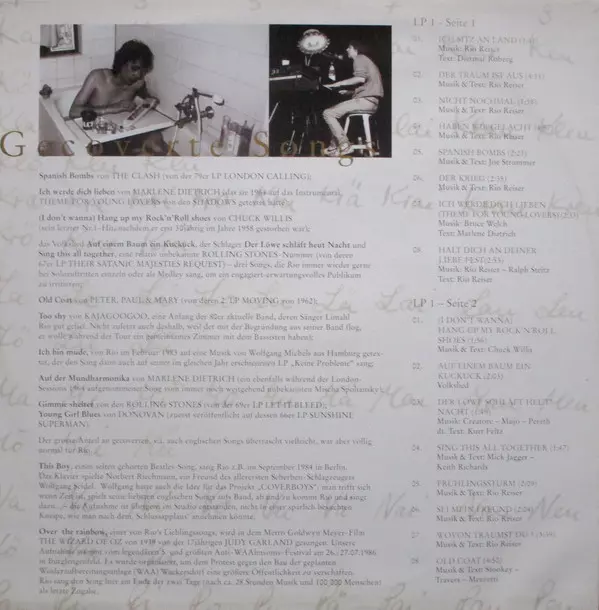 Gecoverte Songs
Spanish Bombs von THE CLASH (von der 79er LP LONDON CALLING);
Ich werde dich lieben von MARLENE DIETRICH (das sie 1964 auf das Instrumental
THEME FOR YOUNG LOVERS von den SHADOWS getextet hatte);
(I don't wanna) Hang up my Rock'n'Roll shoes von CHUCK WILLIS
im Jahre 1958 geworden war);
das Volkslied Auf einem Baum ein Kuckuck, der Schlager Der Löwe schläft heut Nacht und
Sing this all together, eine relativ unbekannte ROLLING STONES-Nummer (von deren
67er LP THEIR SATANIC MAJESTIES REQUEST) – drei Songs, die Rio immer wieder gerne
bei Soloauftritten einzeln oder als Medley sang, um ein erwartungsvolles Publikum
zu irritieren;
Old Coat von PETER, PAUL & MARY (von deren 2. LP MOVING von 1962);
Too shy von KAJAGOOGOO, eine Anfang der 80er aktuelle Band, deren Sänger Limahl
Rio gut gefiel. Nicht zuletzt auch deshalb, weil der mit der Begründung aus seiner Band flog,
er wolle während der Tour ein gemeinsames Zimmer mit dem Bassisten haben);
Ich bin müde, von Rio im Februar 1983 auf eine Musik von Wolfgang Michels aus Hamburg getex-
tet, der den Song dann auch auf seiner im gleichen Jahr erschienenen LP „Keine Probleme" sang;
Auf der Mundharmonika von MARLENE DIETRICH (von ebenfalls während der London-
Sessions 1964 aufgenommener Song vom immer noch weitgehend unbekannten Mischa Spoliansky);
Gimmie shelter von den ROLLING STONES (von der 69er LP LET IT BLEED);
Young Girl Blues von DONOVAN (zuerst veröffentlicht auf dessen 66er LP SUNSHINE
SUPERMAN);
Der grosse Anteil an gecoverten, v.a. auch englischen Songs überrascht vielleicht, war aber völlig
normal für Rio.
This Boy, einen selten gehörten Beatles-Song, sang Rio z.B. im September 1984 in Berlin.
Das Klavier spielte Norbert ein Freund des allerersten Scherben-Schlagzeugers
Wolfgang Seidel. Wolfgang hatte auch die Idee für das Projekt „COVERBOYS", man trifft sich
wenn Zeit ist, spielt seine liebsten englischen Songs aufs Band, ab und zu kommt Rio und singt
dazu... – die Aufnahme ist übrigens im Studio entstanden, nicht in einer spärlich besuchten
Kneipe, wie man nach dem „Schlussapplaus" annehmen könnte.
Over the rainbow, einer von Rio's Lieblingssongs, wird in dem Metro Goldwyn Meyer-Film
THE WIZARD OF OZ von 1939 von der 17jährigen JUDY GARLAND gesungen. Unsere
Aufnahme stammt vom legendären 5. und größten Anti-WAAhnsinns-Festival am 26./27.07.1986
in Burglengenfeld. Es wurde organisiert, um dem Protest gegen den Bau der geplanten
Wiederaufbereitungsanlage (WAA) Wackersdorf eine größere Öffentlichkeit zu verschaffen.
Rio sang den Song hier am Ende der zwei Tage (nach ca. 28 Stunden Musik und 100 000 Menschen)
als letzte Zugabe.
LP 1 - Seite 1
01. ICH SITZ AN LAND
Musik: Rio Reiser
Text: Dietmar Roberg
02. DER TRAUM IST AUS
Musik & Text: Rio Reiser
03. NICHT NOCHMAL
Musik & Text: Rio Reiser
04. HABEN SIE GELACHT
Musik & Text: Rio Reiser
05. SPANISH BOMBS (2:23)
Musik & Text: Joe Strummer
06. DER KRIEG
Musik & Text: Rio Reiser
07. ICH WERDE DICH LIEBEN
(THEME FOR YOUNG LOVERS)
Musik: Bruce Welch
Text: Marlene Dietrich
08. HALT DICH AN DEINER
LIEBE FEST
Musik: Rio Reiser – Ralph Steitz
Text: Rio Reiser
LP 1 – Seite 2
01. (I DON'T WANNA)
HANG UP MY ROCK'N'ROLL
SHOES
Musik & Text: Chuck Willis
02. AUF EINEM BAUM EIN
KUCKUCK (2:03)
Volkslied
03. DER LÖWE SCHLÄFT HEUT
NACHT
Musik: Creatore – Mayo – Peretti
dt. Text: Kurt Feltz
04. SING THIS ALL TOGETHER (1:47)
Musik & Text: Mick Jagger –
Keith Richards
05. FRÜHLINGSSTURM
Musik & Text: Rio Reiser
06. SEI MEIN FREUND
Musik & Text: Rio Reiser
07. WOVON TRÄUMST DU
Musik & Text: Rio Reiser
08. OLD COAT
Musik & Text: Stookey –
Travers – Mezzetti